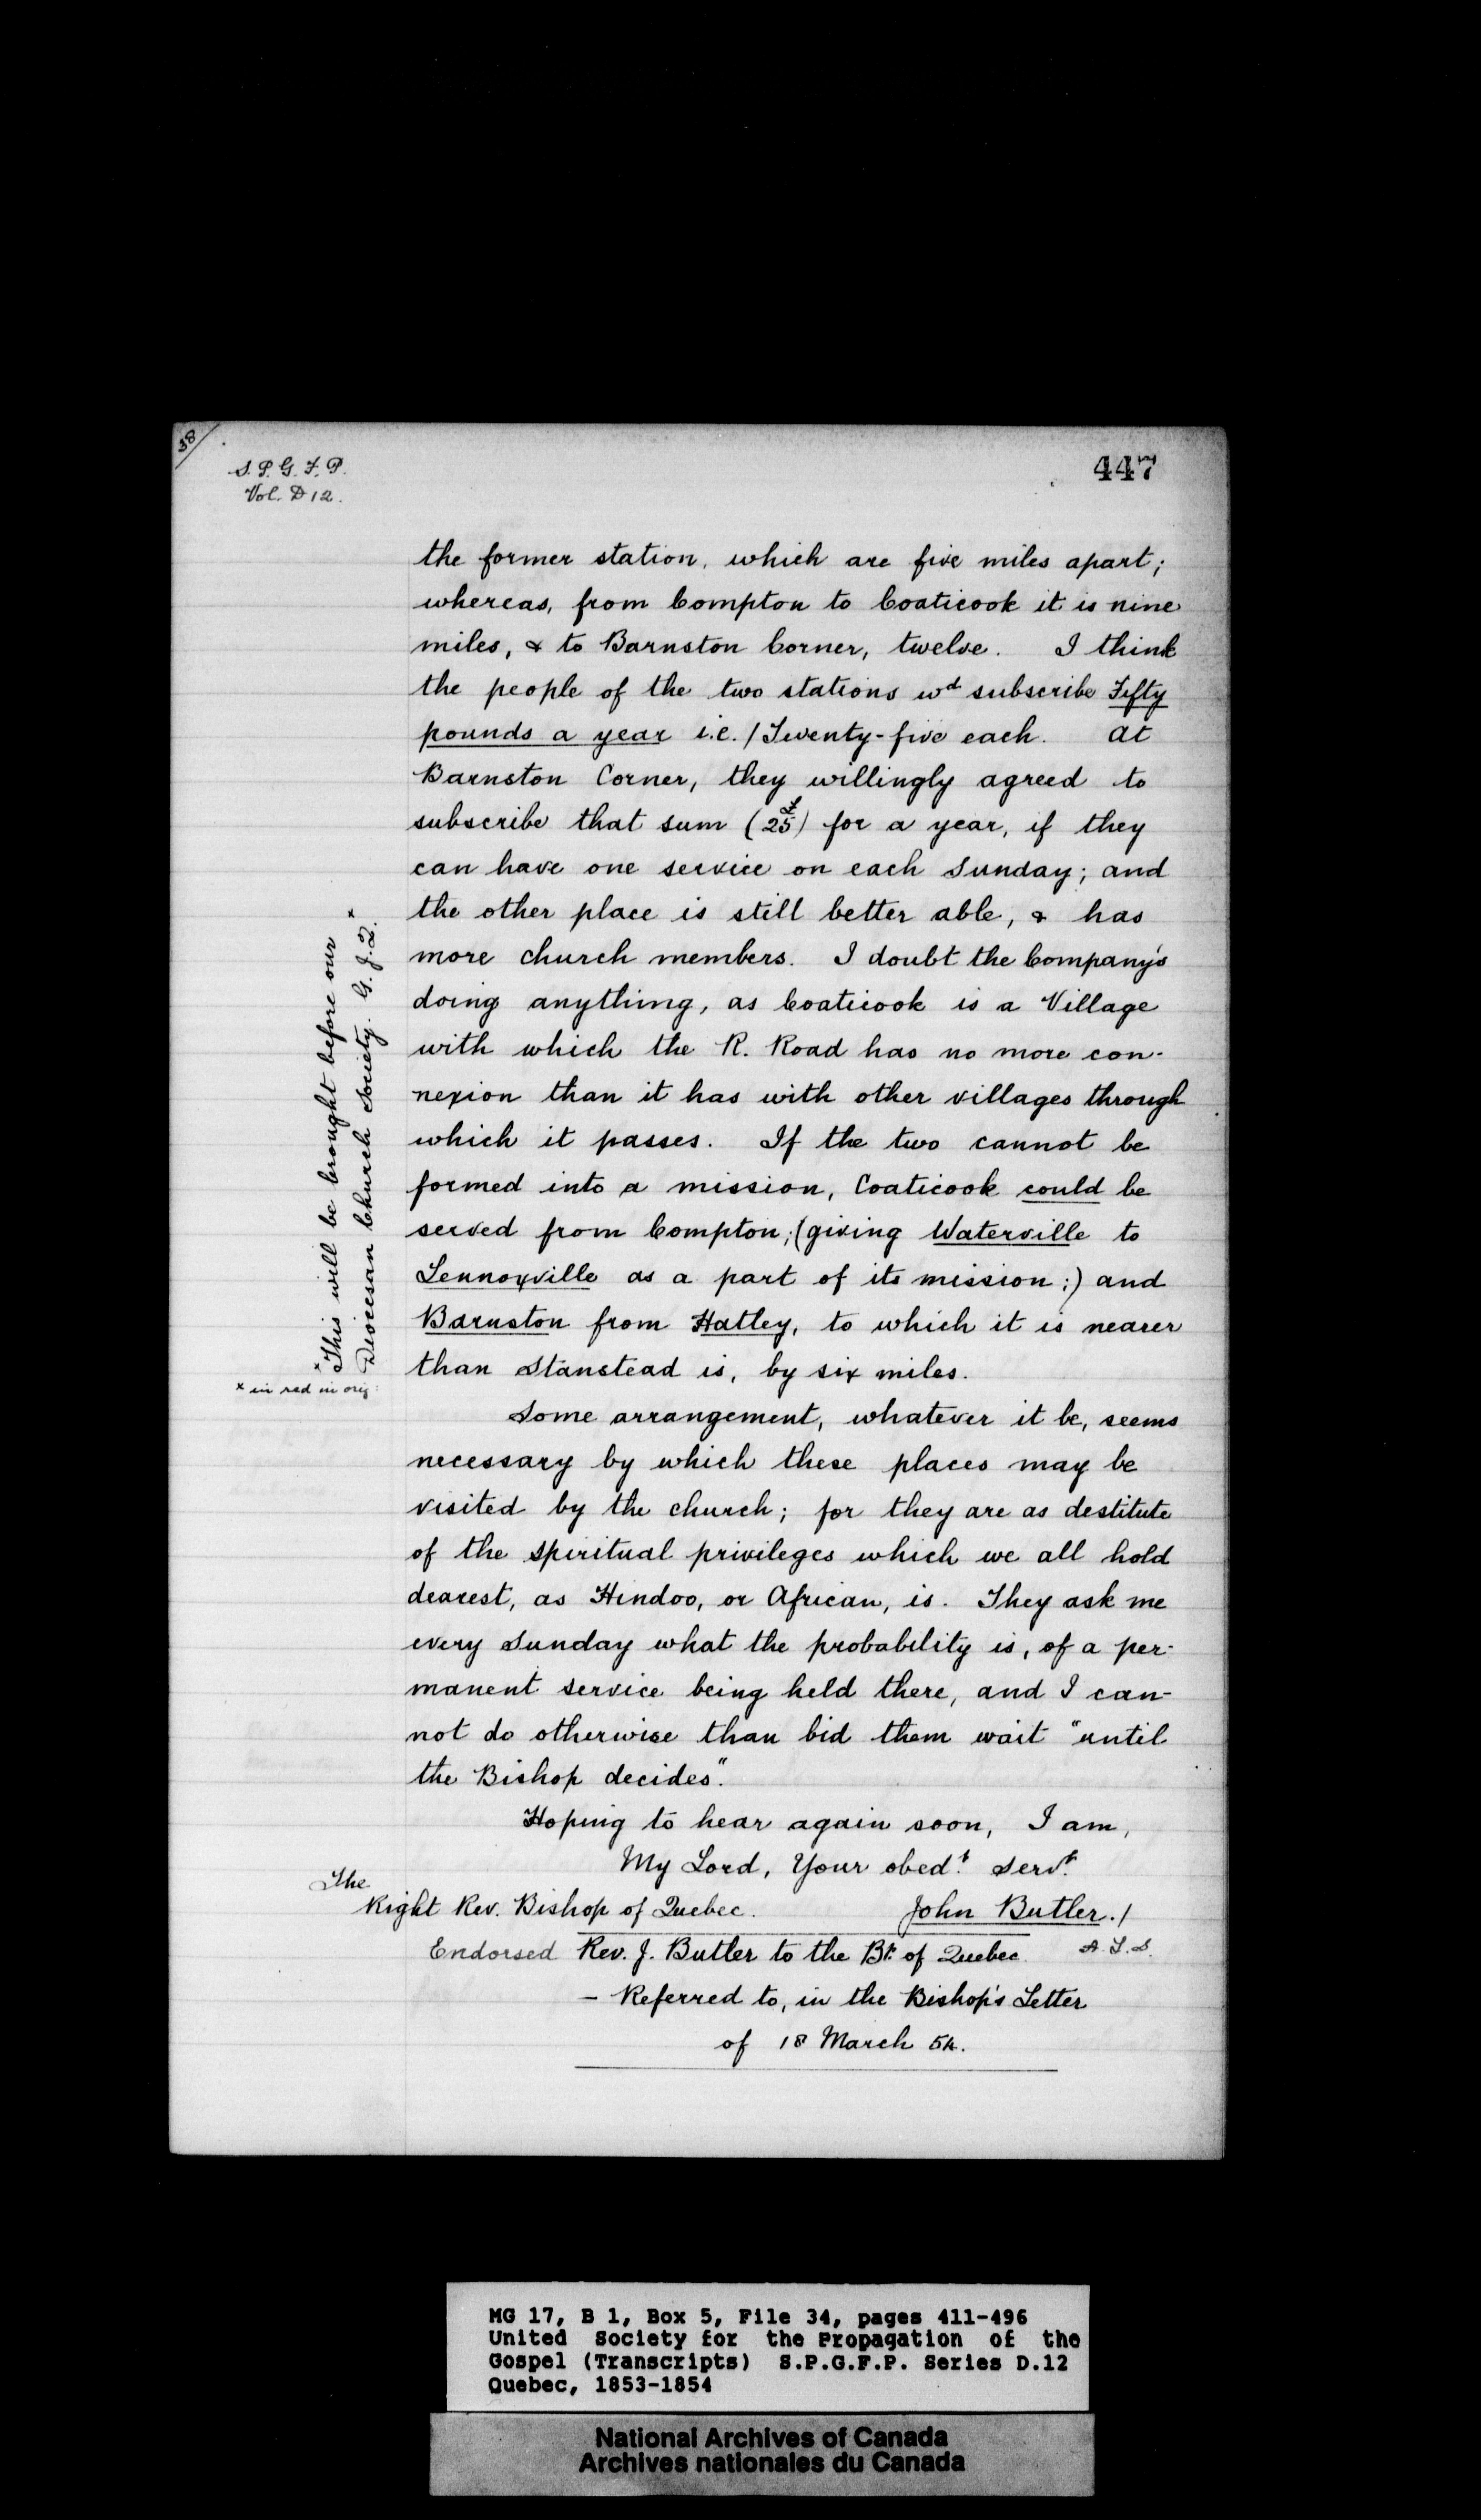 38/
S. P. G. F. P.
Vol. D 12.
447
the former station, which are five miles apart;
whereas, from Compton to Coaticook it is nine
miles, & to Barnston Corner, twelve. I think
the people of the two stations wd subscribe Fifty
pounds a year i.e. / Twenty-five each. At
Barnston Corner, they willingly agreed to
subscribe that sum (25£) for a year, if they
can have one service on each Sunday; and
the other place is still better able, & has
more church members. I doubt the Company's
doing anything, as Coaticook is a Village
with which the R. Road has no more con-
nexion than it has with other villages through
which it passes. If the two cannot be
formed into a mission, Coaticook could be
served from Compton; (giving Waterville to
Lennoxville as a part of its mission;) and
Barnston from Hatley, to which it is nearer
than Stanstead is, by six miles.
x This will be brought before our
Diocesan Church Society. G. J. Q. x
x in red in orig:
Some arrangement, whatever it be, seems
necessary by which these places may be
visited by the church; for they are as destitute
of the spiritual privileges which we all hold
dearest, as Hindoo, or African, is. They ask me
every Sunday what the probability is, of a per-
manent service being held there, and I can-
not do otherwise than bid them wait "until
the Bishop decides".
Hoping to hear again soon, I am,
My Lord, Your obedt. Servt.
The
Right Rev. Bishop of Quebec. John Butler. /
Endorsed Rev. J. Butler to the Bp. of Quebec. A. L. S.
— Referred to, in the Bishop's Letter
of 18 March 54.
MG 17, B 1, Box 5, File 34, pages 411-496
United Society for the Propagation of the
Gospel (Transcripts) S.P.G.F.P. Series D.12
Quebec, 1853-1854
National Archives of Canada
Archives nationales du Canada